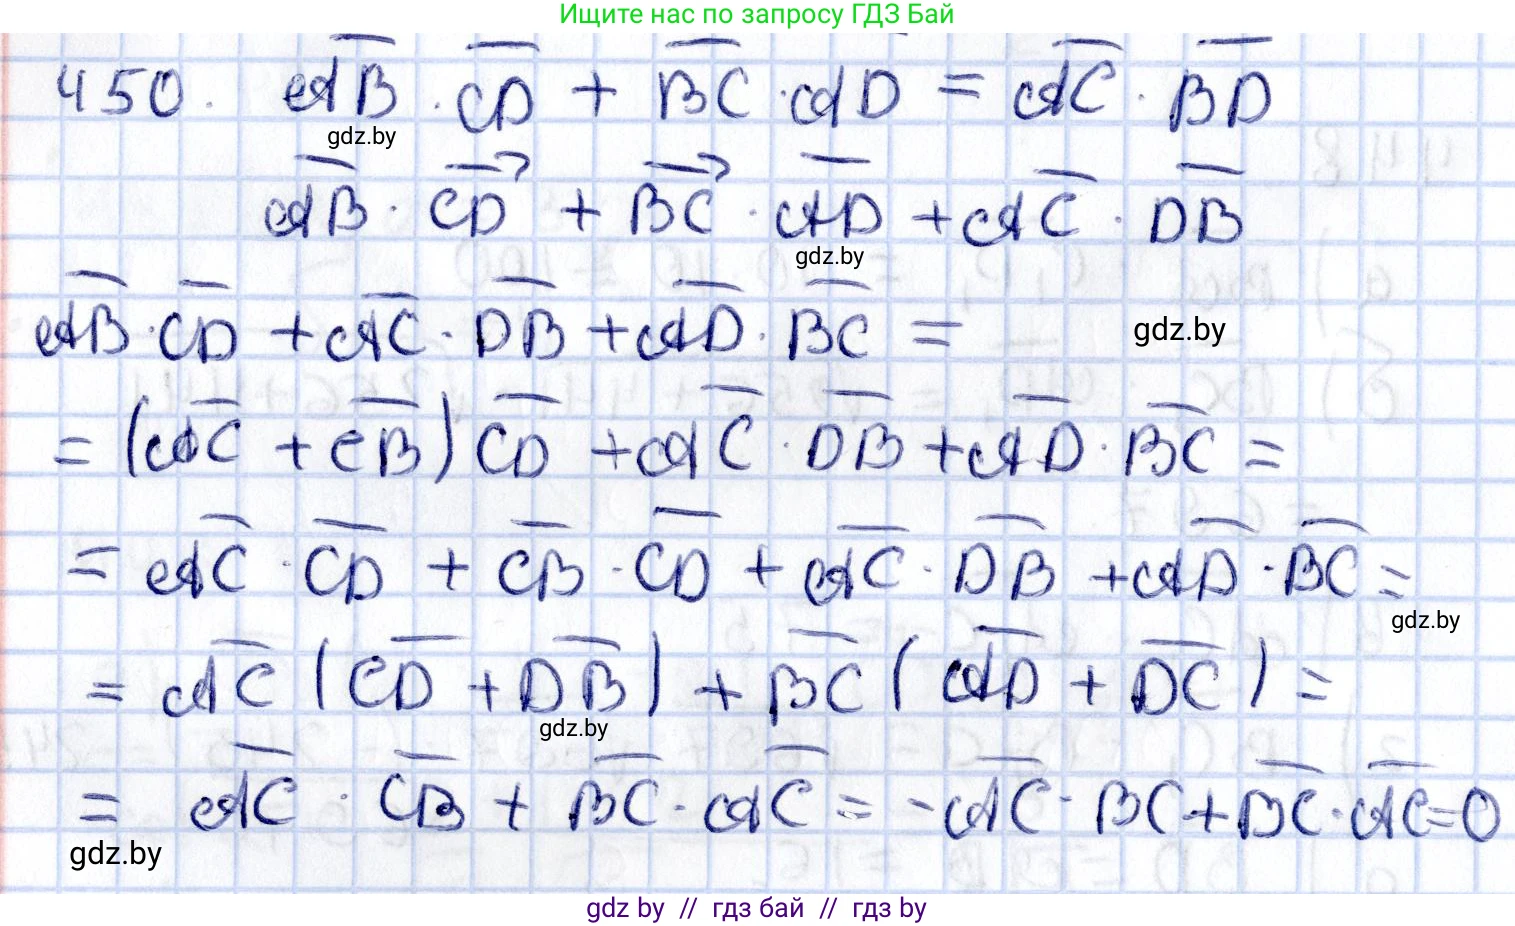 Ищите нас по запросу ГДЗ Бай
450. A̅B̅ · C̅D̅ + B̅C̅ · AD = A̅C̅ · B̅D̅
gdz.by
A̅B̅ · CD⃗ + BC⃗ · A̅D̅ + A̅C̅ · D̅B̅
gdz.by
A̅B̅ · C̅D̅ + A̅C̅ · D̅B̅ + A̅D̅ · B̅C̅ =
gdz.by
= (A̅C̅ + C̅B̅) C̅D̅ + A̅C̅ · D̅B̅ + A̅D̅ · B̅C̅ =
= A̅C̅ · C̅D̅ + C̅B̅ · C̅D̅ + A̅C̅ · D̅B̅ + A̅D̅ · B̅C̅ =
gdz.by
= A̅C̅ (C̅D̅ + D̅B̅) + B̅C̅ (A̅D̅ + D̅C̅) =
gdz.by
= A̅C̅ · C̅B̅ + B̅C̅ · A̅C̅ = - A̅C̅ · BC + B̅C̅ · A̅C̅ = 0
gdz.by
gdz by // гдз бай // гдз by